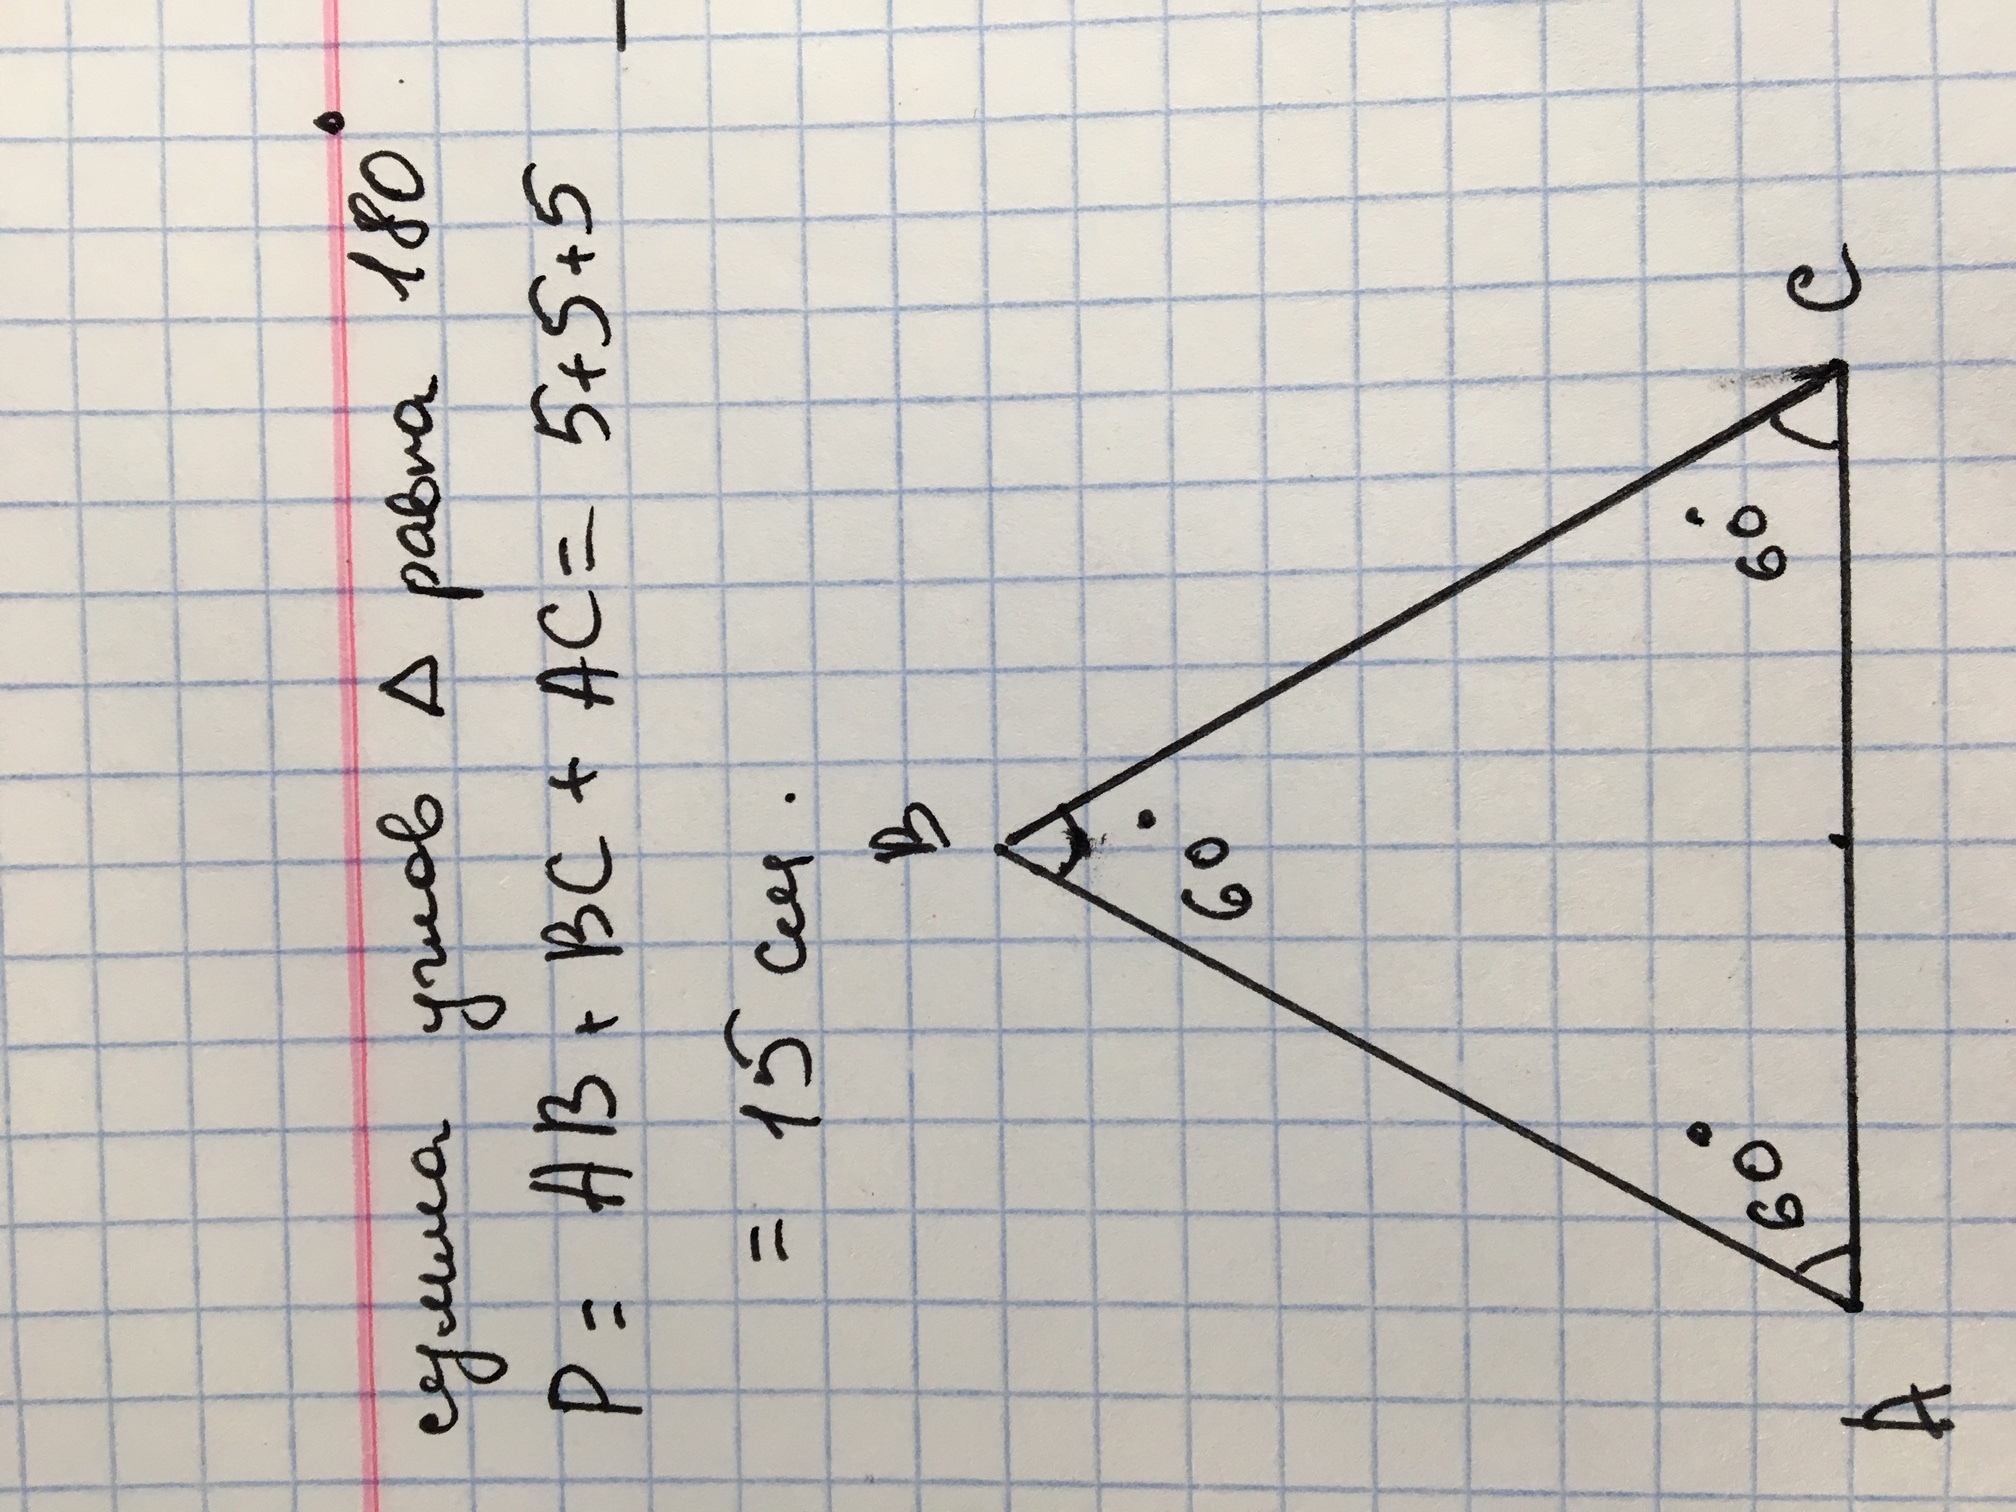 сумма углов Δ равна 180°
P = AB + BC + AC = 5+5+5
= 15 см.
B
60°
60° 60°
A C